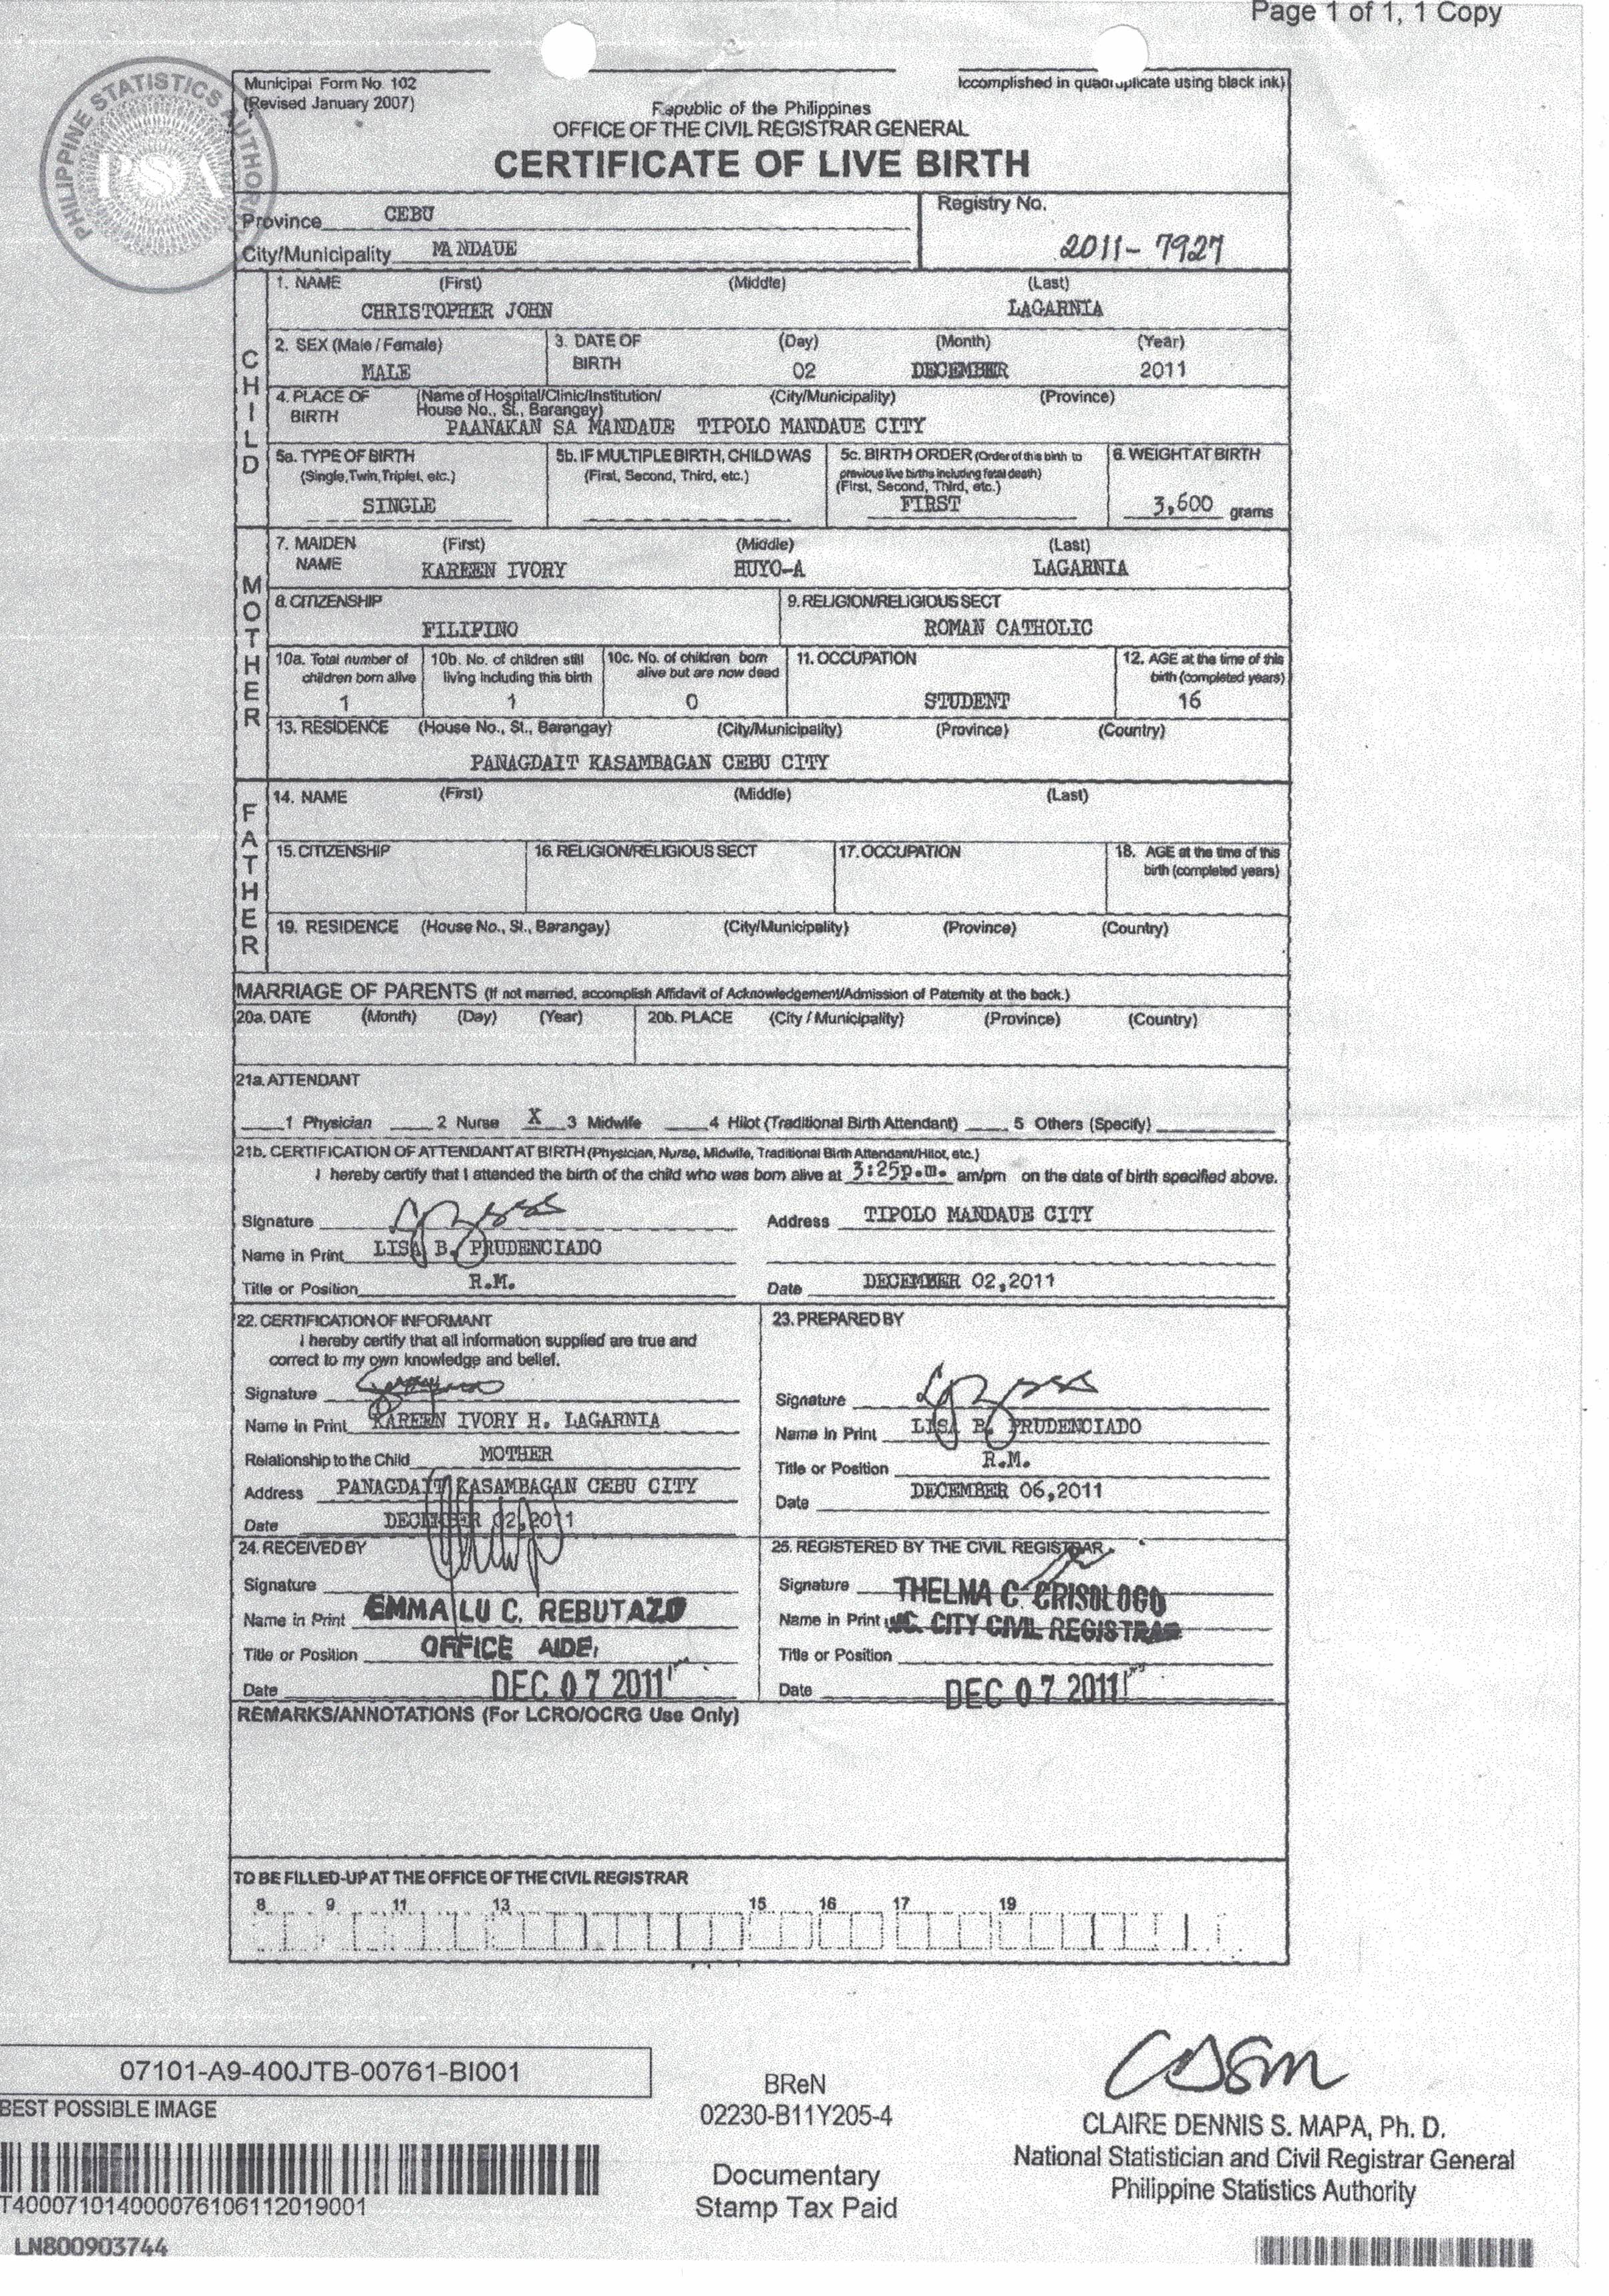 Page 1 of 1, 1 Copy
PHILIPPINE STATISTICS AUTHORITY
PSA
Municipal Form No. 102
(Revised January 2007)
ccomplished in quadruplicate using black ink)
Republic of the Philippines
OFFICE OF THE CIVIL REGISTRAR GENERAL
CERTIFICATE OF LIVE BIRTH
Province CEBU
City/Municipality MANDAUE
Registry No.
2011-7927
CHILD
1. NAME (First) (Middle) (Last)
CHRISTOPHER JOHN LAGARNIA
2. SEX (Male / Female)
MALE
3. DATE OF BIRTH (Day) (Month) (Year)
02 DECEMBER 2011
4. PLACE OF BIRTH (Name of Hospital/Clinic/Institution/ House No., St., Barangay) (City/Municipality) (Province)
PAANAKAN SA MANDAUE TIPOLO MANDAUE CITY
5a. TYPE OF BIRTH
(Single, Twin, Triplet, etc.)
SINGLE
5b. IF MULTIPLE BIRTH, CHILD WAS
(First, Second, Third, etc.)
5c. BIRTH ORDER (Order of this birth to
previous live births including fetal death)
(First, Second, Third, etc.)
FIRST
6. WEIGHT AT BIRTH
3,600 grams
MOTHER
7. MAIDEN NAME (First) (Middle) (Last)
KAREEN IVORY HUYO-A LAGARNIA
8. CITIZENSHIP
FILIPINO
9. RELIGION/RELIGIOUS SECT
ROMAN CATHOLIC
10a. Total number of
children born alive
1
10b. No. of children still
living including this birth
1
10c. No. of children born
alive but are now dead
0
11. OCCUPATION
STUDENT
12. AGE at the time of this
birth (completed years)
16
13. RESIDENCE (House No., St., Barangay) (City/Municipality) (Province) (Country)
PANAGDAIT KASAMBAGAN CEBU CITY
FATHER
14. NAME (First) (Middle) (Last)
15. CITIZENSHIP
16. RELIGION/RELIGIOUS SECT
17. OCCUPATION
18. AGE at the time of this
birth (completed years)
19. RESIDENCE (House No., St., Barangay) (City/Municipality) (Province) (Country)
MARRIAGE OF PARENTS (If not married, accomplish Affidavit of Acknowledgement/Admission of Paternity at the back.)
20a. DATE (Month) (Day) (Year)
20b. PLACE (City / Municipality) (Province) (Country)
21a. ATTENDANT
1 Physician 2 Nurse X 3 Midwife 4 Hilot (Traditional Birth Attendant) 5 Others (Specify)
21b. CERTIFICATION OF ATTENDANT AT BIRTH (Physician, Nurse, Midwife, Traditional Birth Attendant/Hilot, etc.)
I hereby certify that I attended the birth of the child who was born alive at 3:25p.m. am/pm on the date of birth specified above.
Signature
Address TIPOLO MANDAUE CITY
Name in Print LISA B. PRUDENCIADO
Title or Position R.M.
Date DECEMBER 02,2011
22. CERTIFICATION OF INFORMANT
I hereby certify that all information supplied are true and
correct to my own knowledge and belief.
Signature
Name in Print KAREEN IVORY H. LAGARNIA
Relationship to the Child MOTHER
Address PANAGDAIT KASAMBAGAN CEBU CITY
Date DECEMBER 02,2011
23. PREPARED BY
Signature
Name in Print LISA B. PRUDENCIADO
Title or Position R.M.
Date DECEMBER 06,2011
24. RECEIVED BY
Signature
Name in Print EMMA LU C. REBUTAZO
Title or Position OFFICE AIDE
Date DEC 07 2011
25. REGISTERED BY THE CIVIL REGISTRAR
Signature THELMA C. CRISOLOGO
Name in Print CITY CIVIL REGISTRAR
Title or Position
Date DEC 07 2011
REMARKS/ANNOTATIONS (For LCRO/OCRG Use Only)
TO BE FILLED-UP AT THE OFFICE OF THE CIVIL REGISTRAR
8 9 11 13 15 16 17 19
07101-A9-400JTB-00761-BI001
BEST POSSIBLE IMAGE
T400071014000076106112019001
LN800903744
BReN
02230-B11Y205-4
Documentary
Stamp Tax Paid
CLAIRE DENNIS S. MAPA, Ph. D.
National Statistician and Civil Registrar General
Philippine Statistics Authority